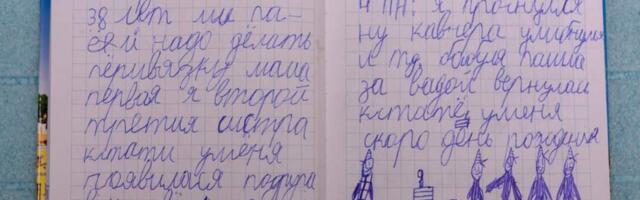 38 лет
надо делать
перивязки мама
первая я второй
третия систра
кстати уменя
появилася подруга
4 ПН: я проснулся
ну кавчера улибнулся
и тд. бабуля пашла
за вадой вернулас
кстате уменя
скоро день рождения